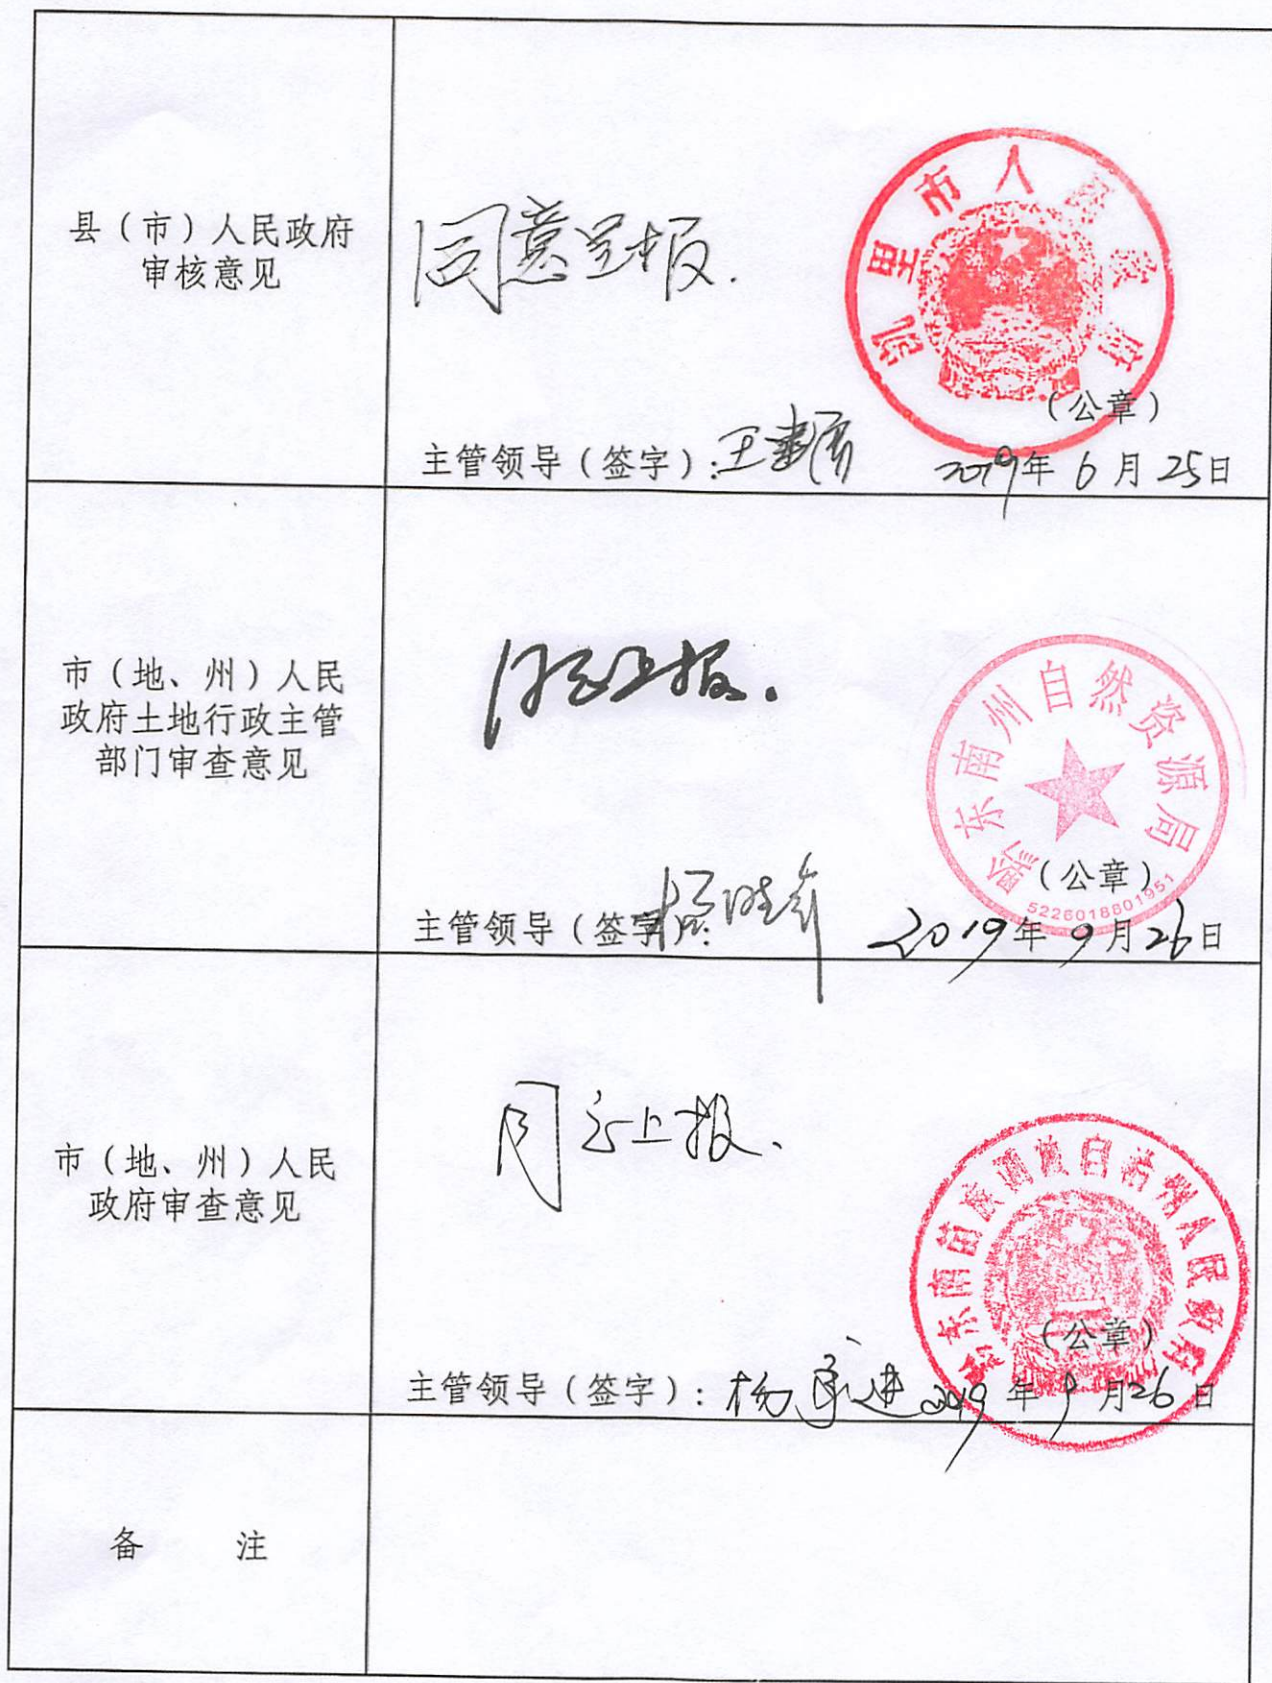 县（市）人民政府
审核意见
同意呈报.
凯里市人民政府
（公章）
主管领导（签字）：王 2019年6月25日
市（地、州）人民
政府土地行政主管
部门审查意见
同意上报.
黔东南州自然资源局
5226018801951
（公章）
主管领导（签字）： 2019年9月26日
市（地、州）人民
政府审查意见
同意上报.
黔东南苗族侗族自治州人民政府
（公章）
主管领导（签字）：杨 2019年9月26日
备 注